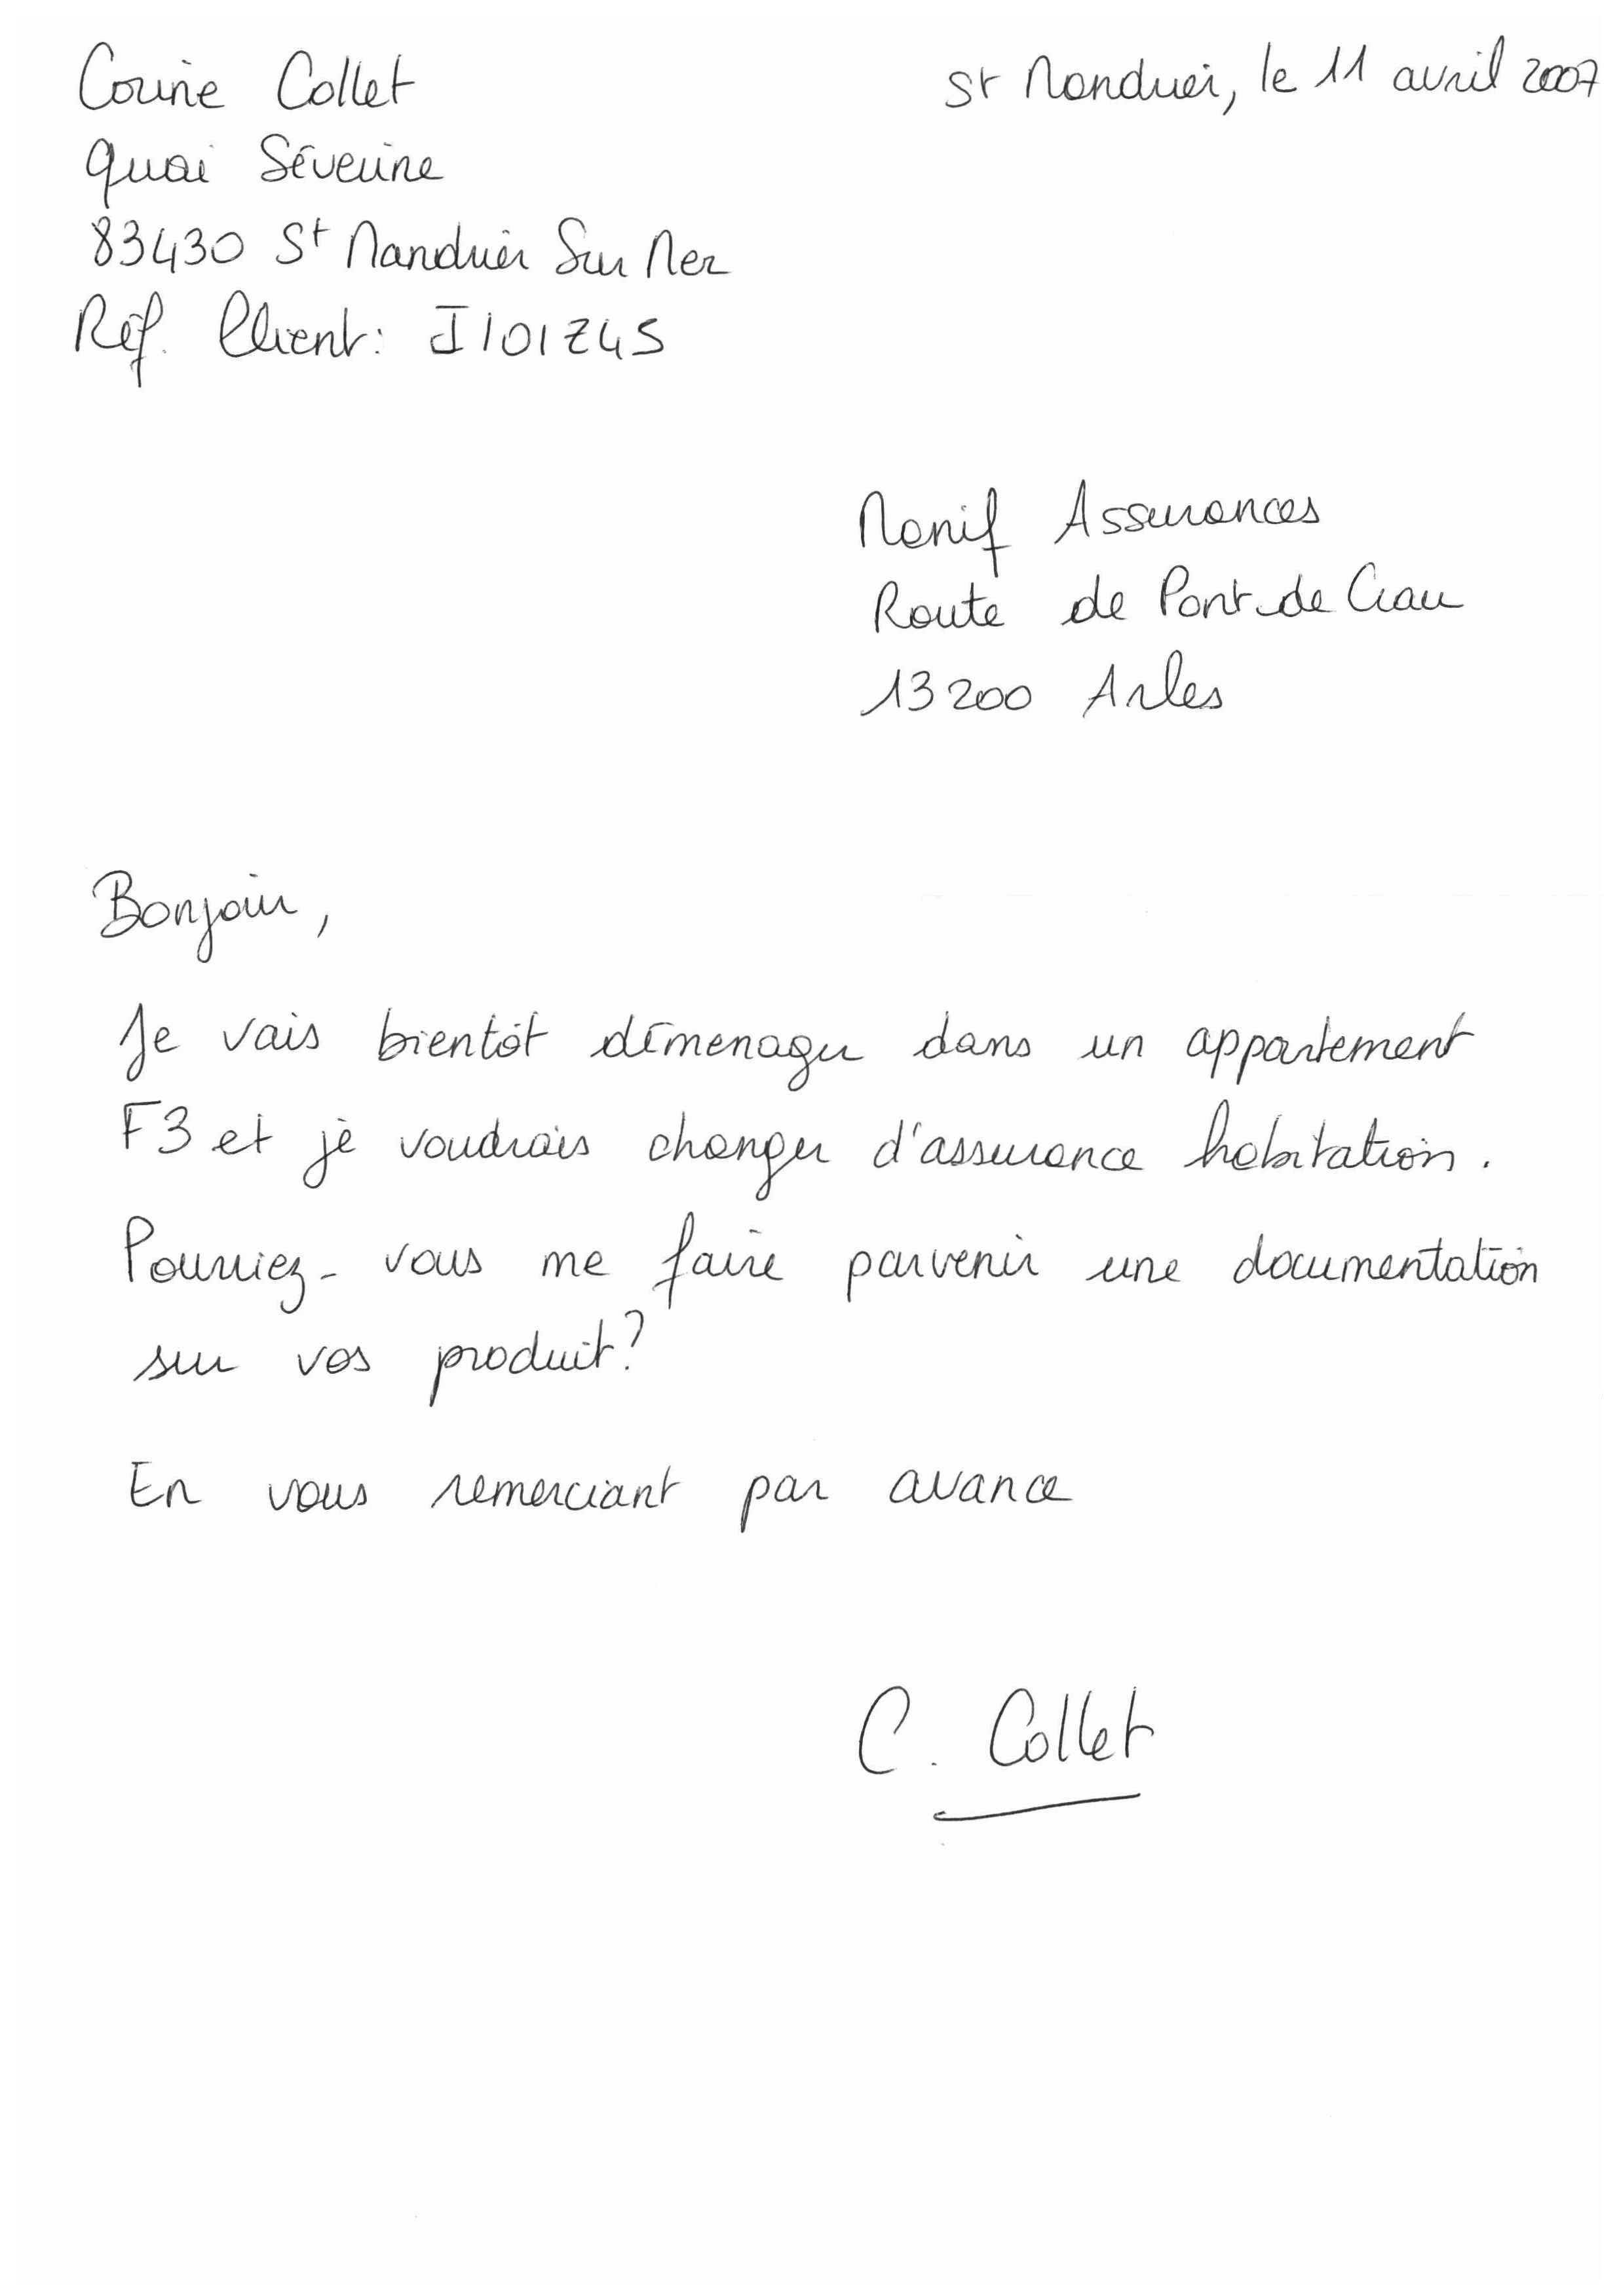 Corine Collet
St Mandrier, le 11 avril 2007
quai Séverine
83430 St Mandrier Sur Mer
Réf. Client: JIOIZ45
Manif Assurances
Route de Pont-de Crau
13200 Arles
Bonjour,
Je vais bientôt déménager dans un appartement
F3 et je voudrais changer d'assurance habitation.
Pourriez-vous me faire parvenir une documentation
sur vos produit?
En vous remerciant par avance
C. Collet